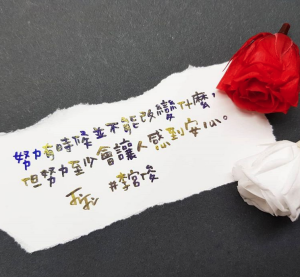 努力有時候並不能改變什麼，
但努力至少會讓人感到安心。
#李宮俊